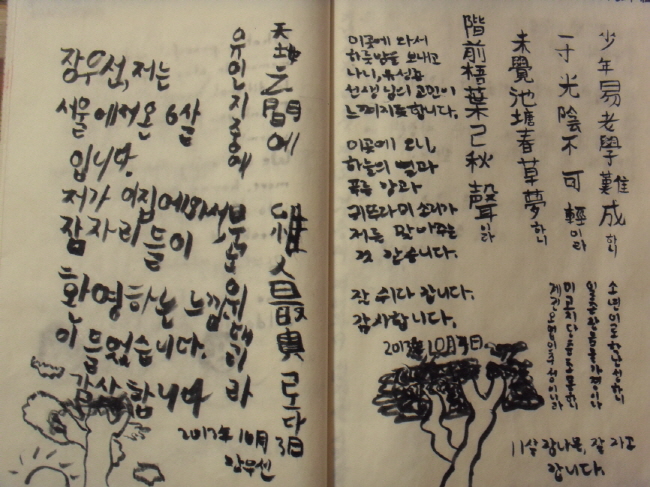 天地之間에 唯人最貴로다
유인지중에
장우선, 저는
서울에서 온 6살
입니다.
저가 이집에 와서
잠자리들이
환영하는 느낌
이 들었습니다.
감사합니다
2012年 10月 3日
少年易老學難成하니
一寸光陰不可輕이라
未覺池塘春草夢하니
階前梧葉已秋聲이라
이곳에 와서
하룻밤을 보내고
나니, 유성룡
선생님의 고민이
이곳에 오니,
하늘의 별과
푸른 강과
귀뚜라미 소리가
저를 맞이하는
것 같습니다.
잘 쉬다 갑니다.
감사합니다.
2012年 10月 3日.
소년이로학난성하니
일촌광음불가경이라
미교지당춘초몽하니
계전오엽이추성이라
11살 장나목, 잘 자고
갑니다.